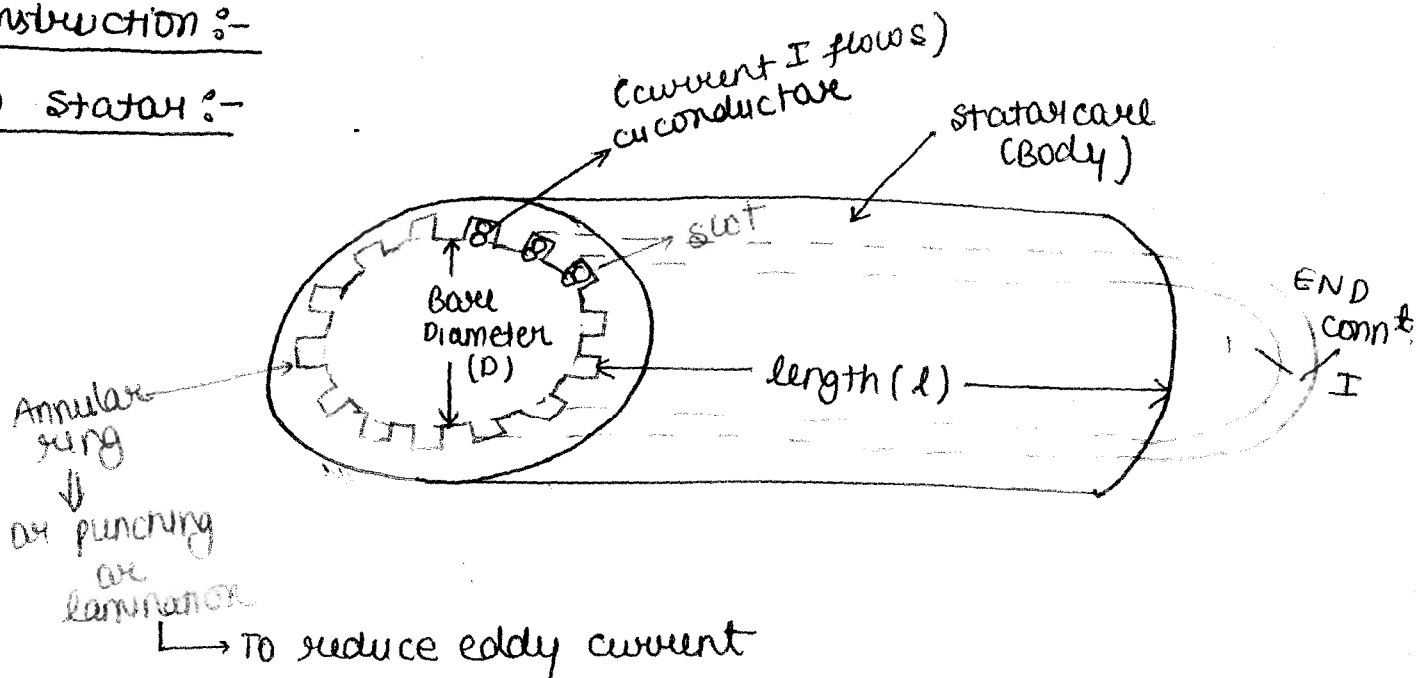 nstruction :-
Stator :-
(current I flows)
cu conductor
stator core
(Body)
slot
END
connt.
I
Bore
Diameter
(D)
length (l)
Annular
ring
⇓
or punching
or
lamination
→ To reduce eddy current